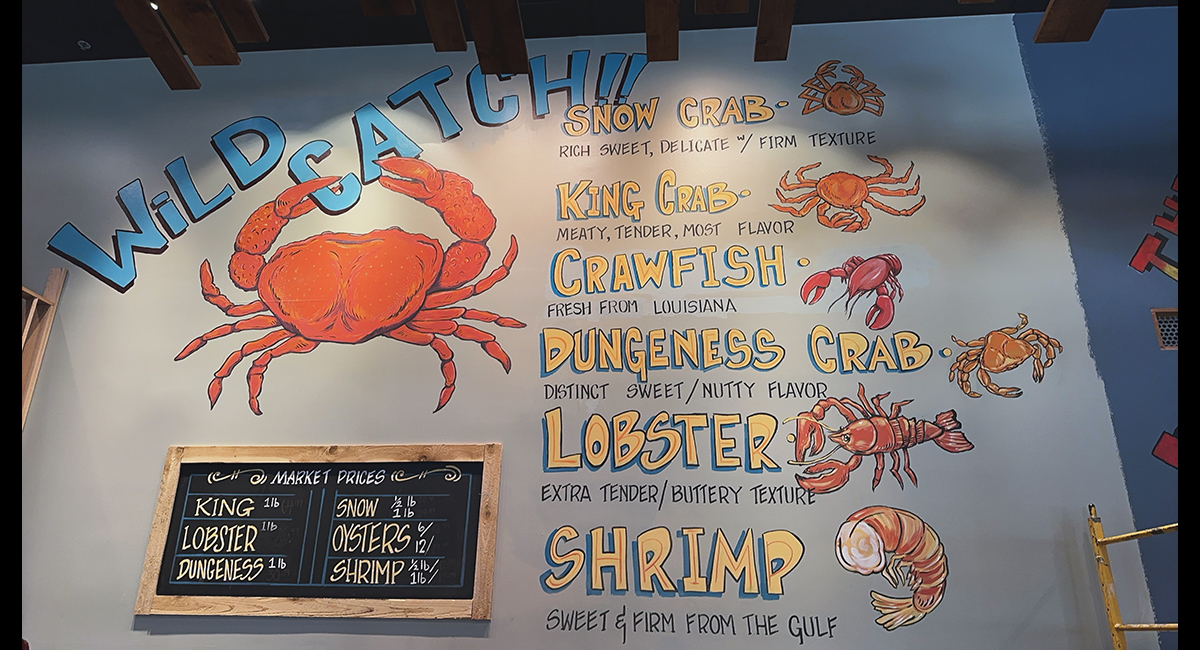 WiLD CATCH!!
SNOW CRAB·
RICH SWEET, DELICATE w/ FIRM TEXTURE
KING CRAB·
MEATY, TENDER, MOST FLAVOR
CRAWFISH·
FRESH FROM LOUISIANA
DUNGENESS CRAB·
DISTINCT SWEET/NUTTY FLAVOR
LOBSTER·
EXTRA TENDER/BUTTERY TEXTURE
SHRIMP
SWEET & FIRM FROM THE GULF
MARKET PRICES
KING 1lb
LOBSTER 1lb
DUNGENESS 1lb
SNOW ½lb 1lb
OYSTERS 6/ 12/
SHRIMP ½lb/ 1lb/